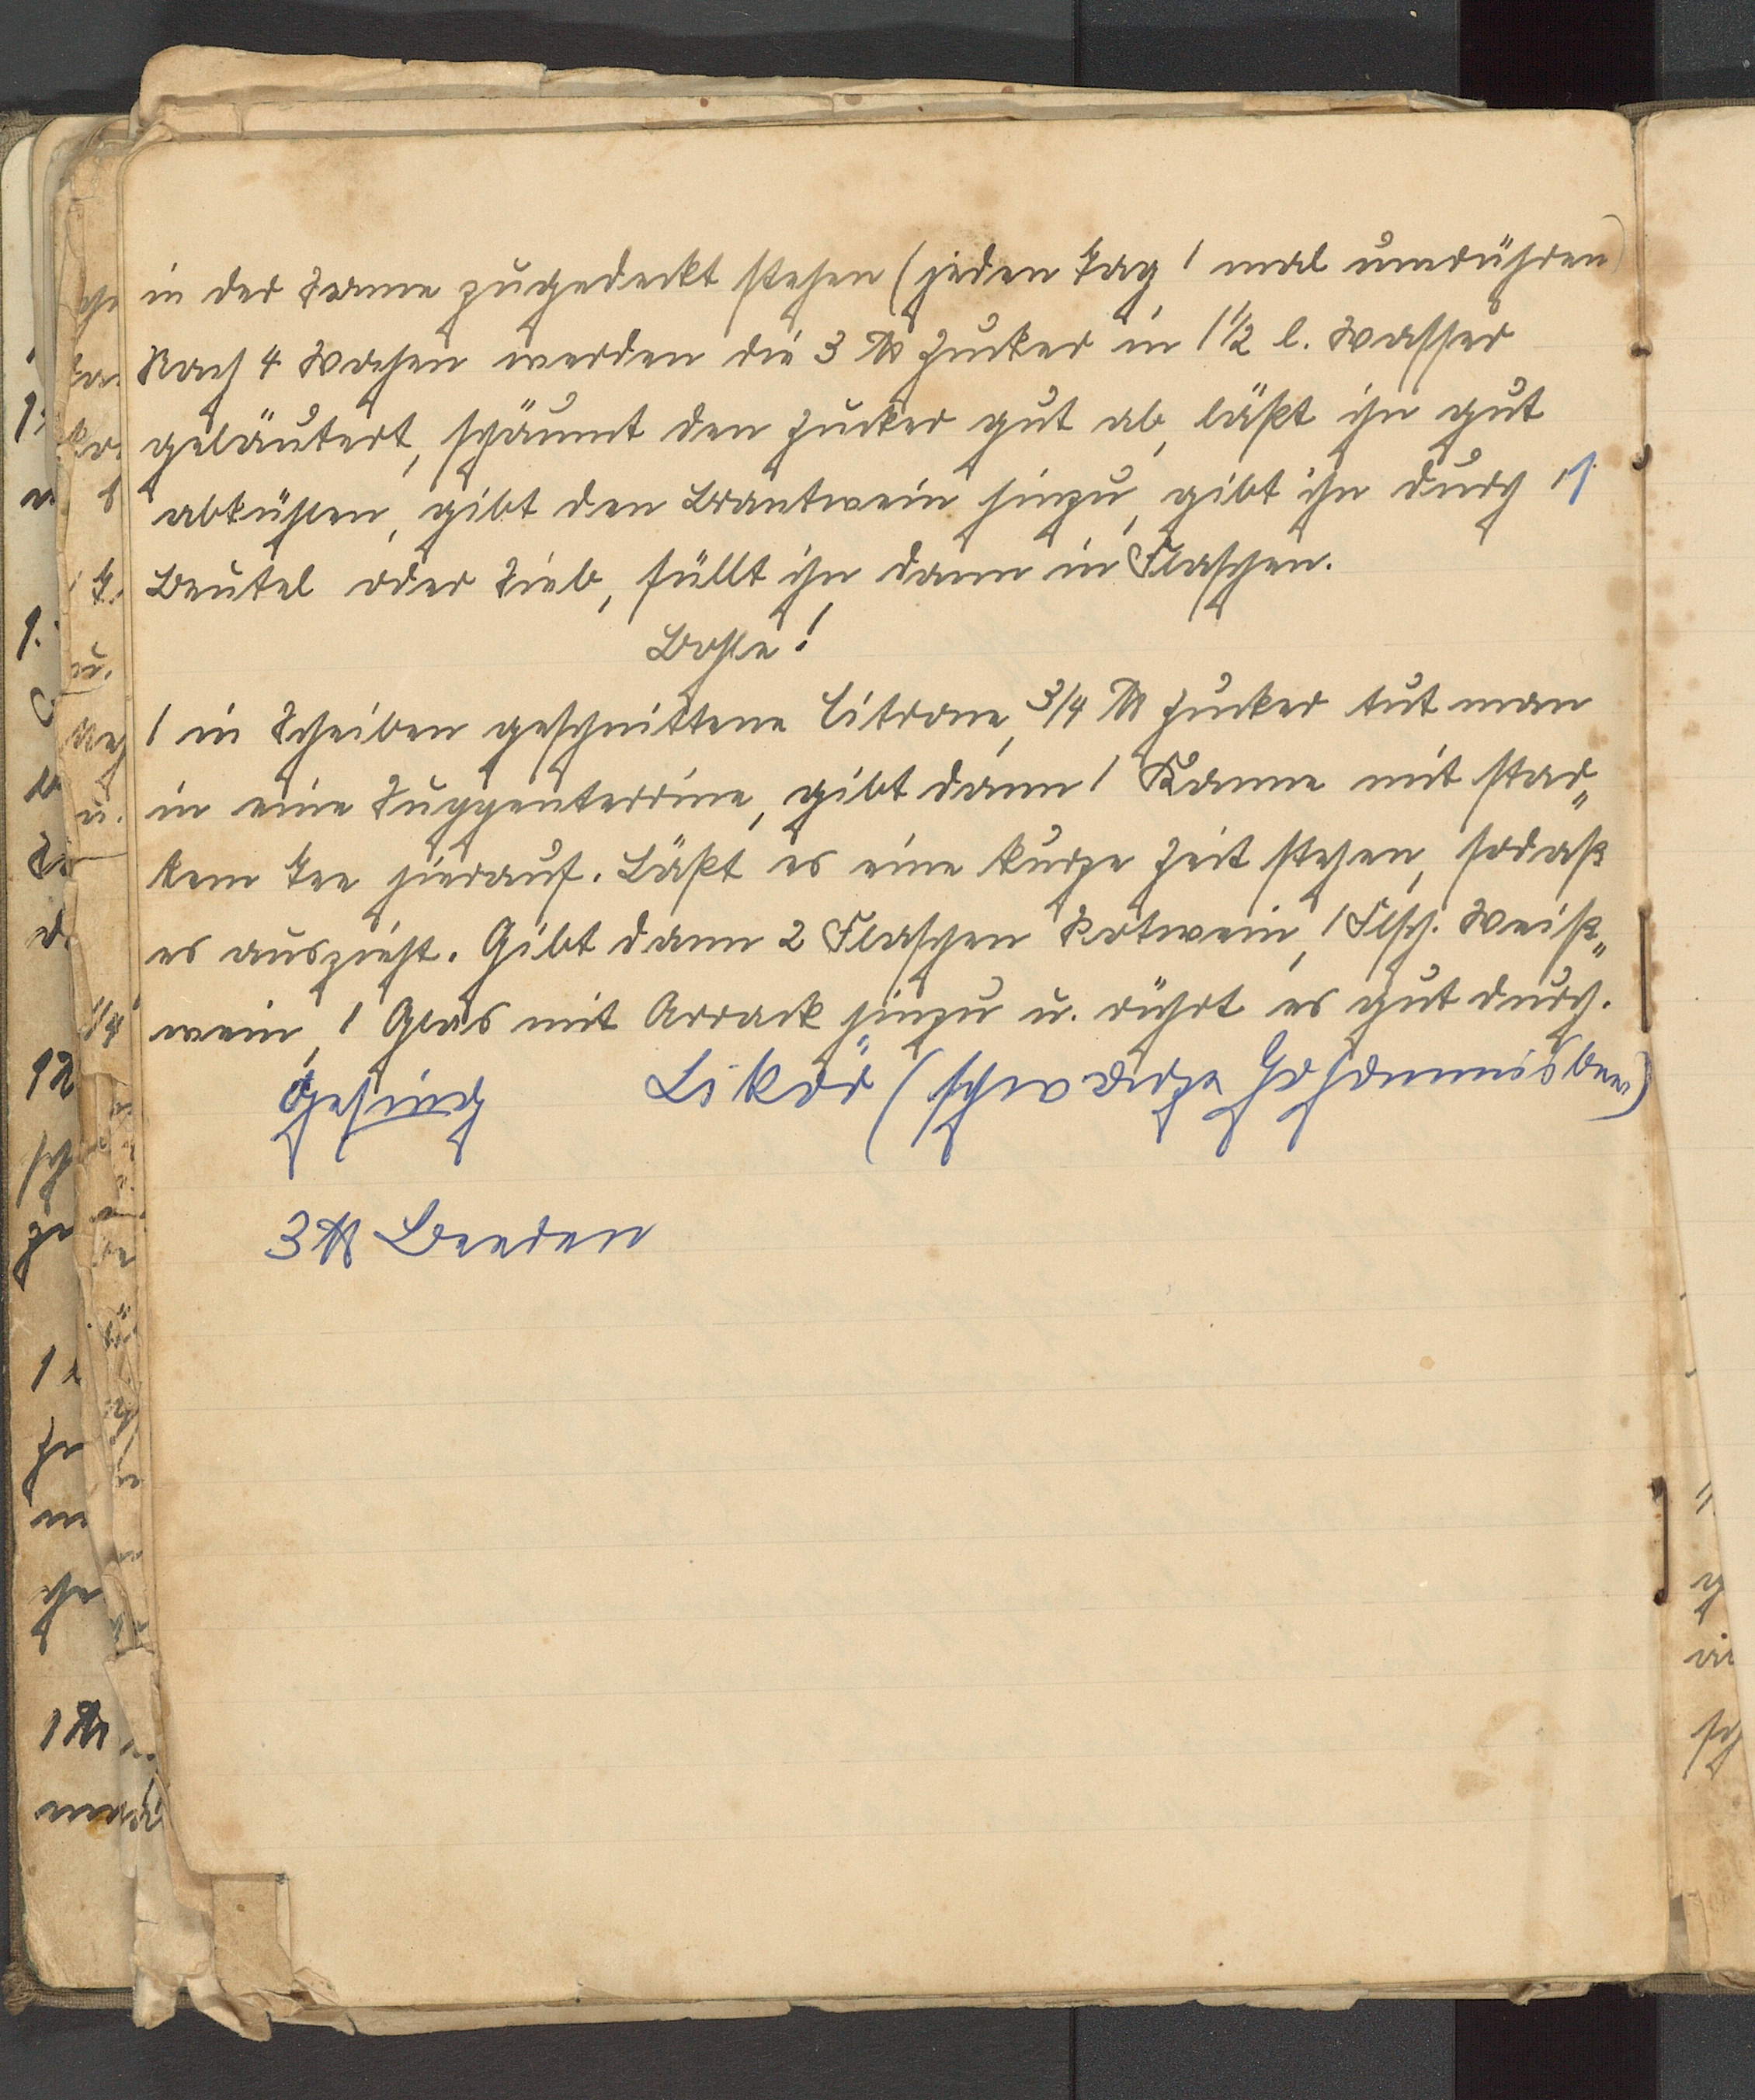 in der Sonne zugedeckt stehen (jeden Tag 1 mal umrühren)
Nach 4 Wochen werden die 3 ℔ Zucker in 1½ l. Wasser
geläutert, schäumt den Zucker gut ab, läßt ihn gut
abkühlen, gibt den Brantwein hinzu, gibt ihn durch
Beutel oder Sieb, füllt ihn dann in Flaschen.
Bohle!
1 in Scheiben geschnittene Citrone, 3/4 ℔ Zucker tut man
in eine Suppenterrine, gibt dann 1 Kanne mit star„
kem Tee hierauf. Läßt es eine kurze Zeit stehen, sodaß
es auszieht. Gibt dann 2 Flaschen Rotwein, 1 Flsch. Weiß„
wein, 1 Glas mit Arrack hinzu u. rührt es gut durch.
Likör (schwarze Johannisbeer)
3 ℔ Beeren